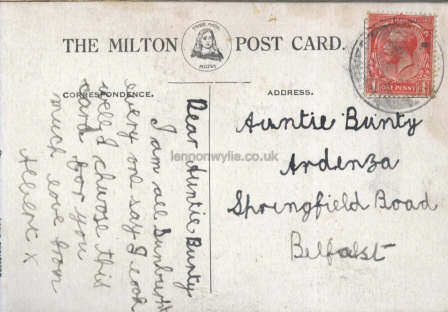 THE MILTON POST CARD.
TRADE MARK
MILTON
ONE PENNY
CORRESPONDENCE.
ADDRESS.
Dear Auntie Bunty
I am all Sunburnt
every one say I look
well I choose this
card for you
much love from
Albert x
Auntie Bunty
Ardenza
Springfield Road
Belfast
lennonwylie.co.uk